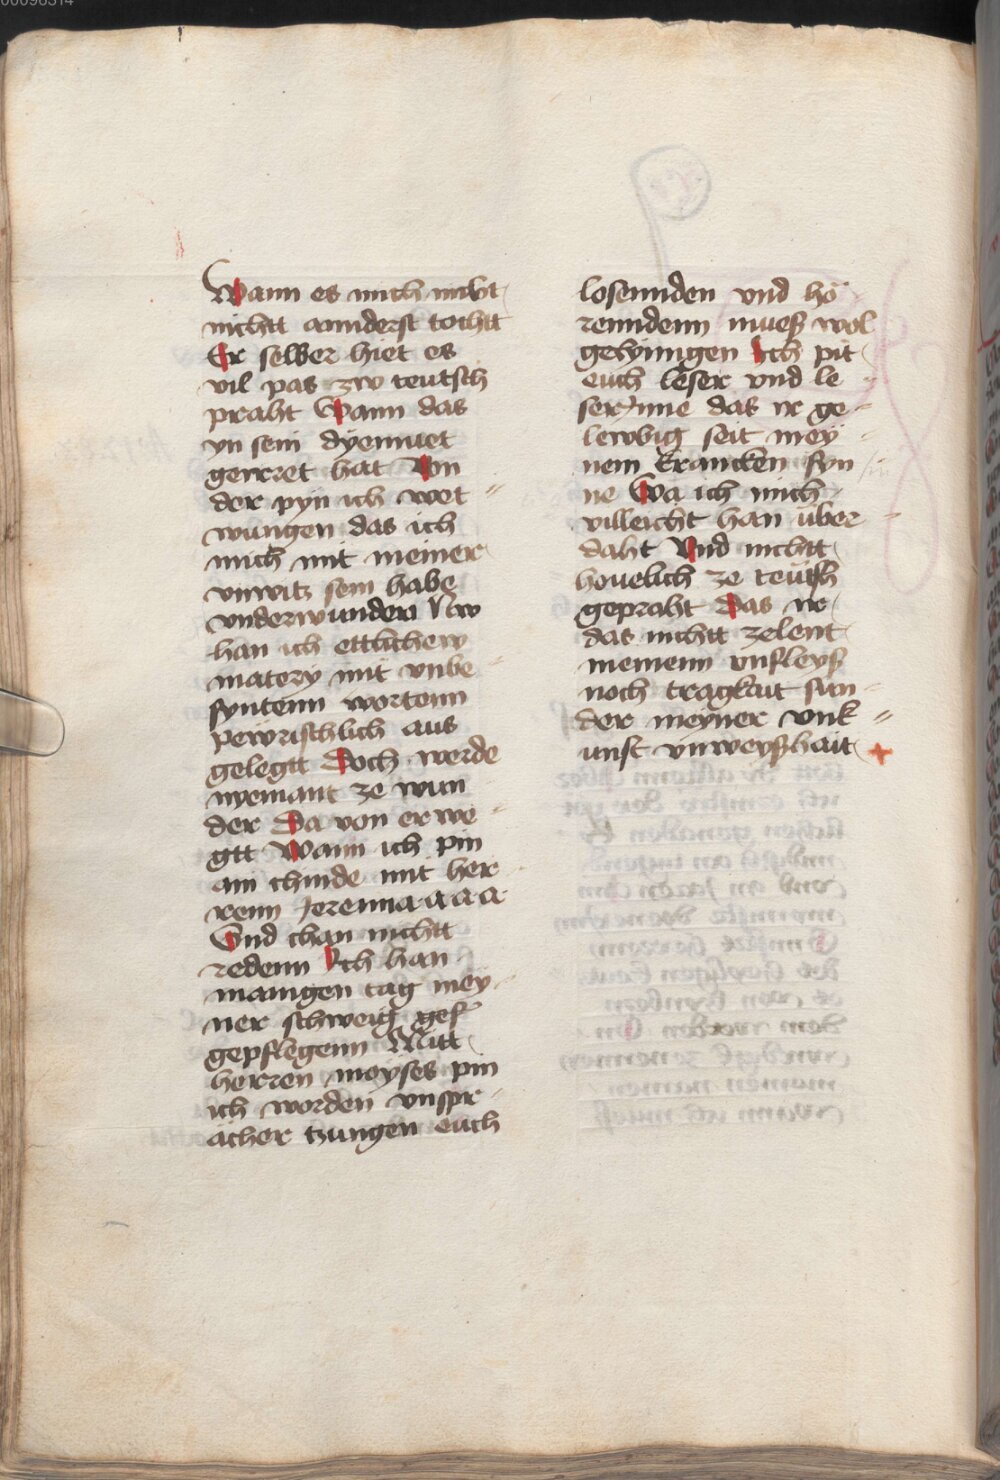 Wann es mich nicht
nichtt annderst tochtt
Er selber hiet es
vil pas zw teutsch
praht Wann das
yn sein dyemuet
gerirret hat Von
der pyn ich wet
wungen das ich
mich mit meiner
vnwitz sein habe
vnderwunden Nw
han ich ettlichew
matery mit vnbe
syntenn wortenn
pewrischlich aus
gelegtt Doch werde
nyemant ze wun
der Da von er we
gtt Wann ich pin
ain chinde mit her
renn Jeremia a a a
Und chan nichtt
redenn Ich han
manigen tag mey
ner schweig gef
gepflegenn Mitt
herren moyses pin
ich worden vnspr
ächer tzungen euch
losennden vnd hö
renndenn mueß wol
gelyinngen Ich pit
euch leser vnd le
serynne das ir ge
lewbig seit mey
nem krancken syn
ne Wa ich mich
villeicht han über
daht Vnd nichtt
houelich ze teutsch
gepraht Das ir
das nichtt zelent
meinenn vnfleyß
noch tragkait sun
der meyner vnk
unst vnweyßhait